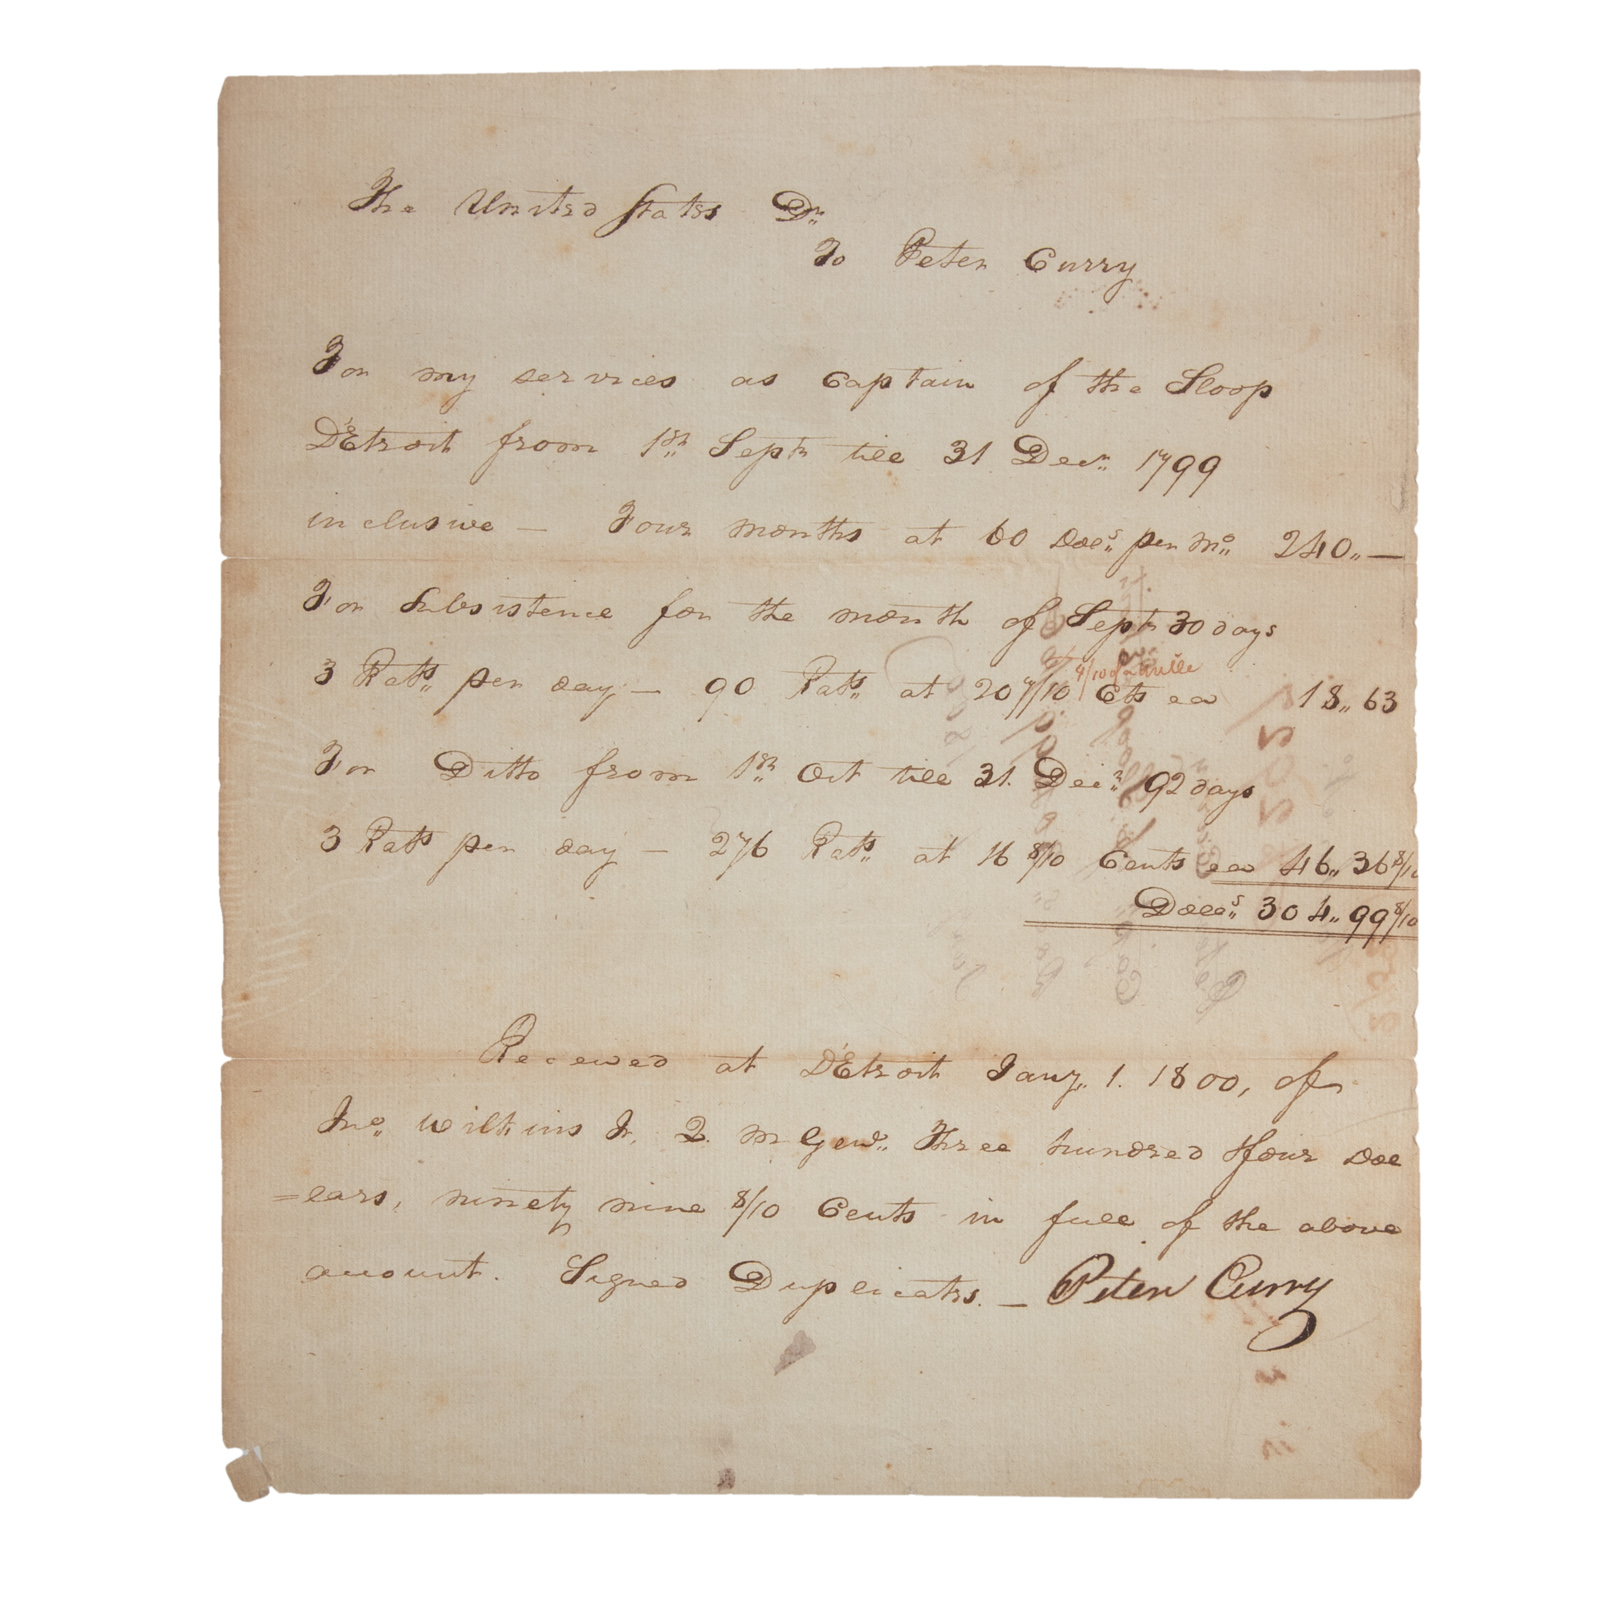 The United States Dr.
To Peter Curry
For my services as Captain of the Sloop
D'Etroit from 1st Septr till 31 Decr. 1799
inclusive — Four months at 60 Dolls. per Mo. 240,, —
For Subsistence for the month of Septr 30 days
4/10 of a Mille
3 Rats. per day — 90 Rats. at 20 7/10 Cts ea 18,, 63
For Ditto from 1st Oct till 31. Decr. 92 days
3 Rats per day — 276 Rats. at 16 8/10 Cents ea 46,, 36 8/10
Dolls. 304,, 99 8/10
Received at D'Etroit Jany. 1. 1800, of
Jno. Wilkins Jr. Q. M Genl. Three hundred & four Dol
=lars, ninety nine 8/10 Cents in full of the above
account. Signed Duplicates. — Peter Curry